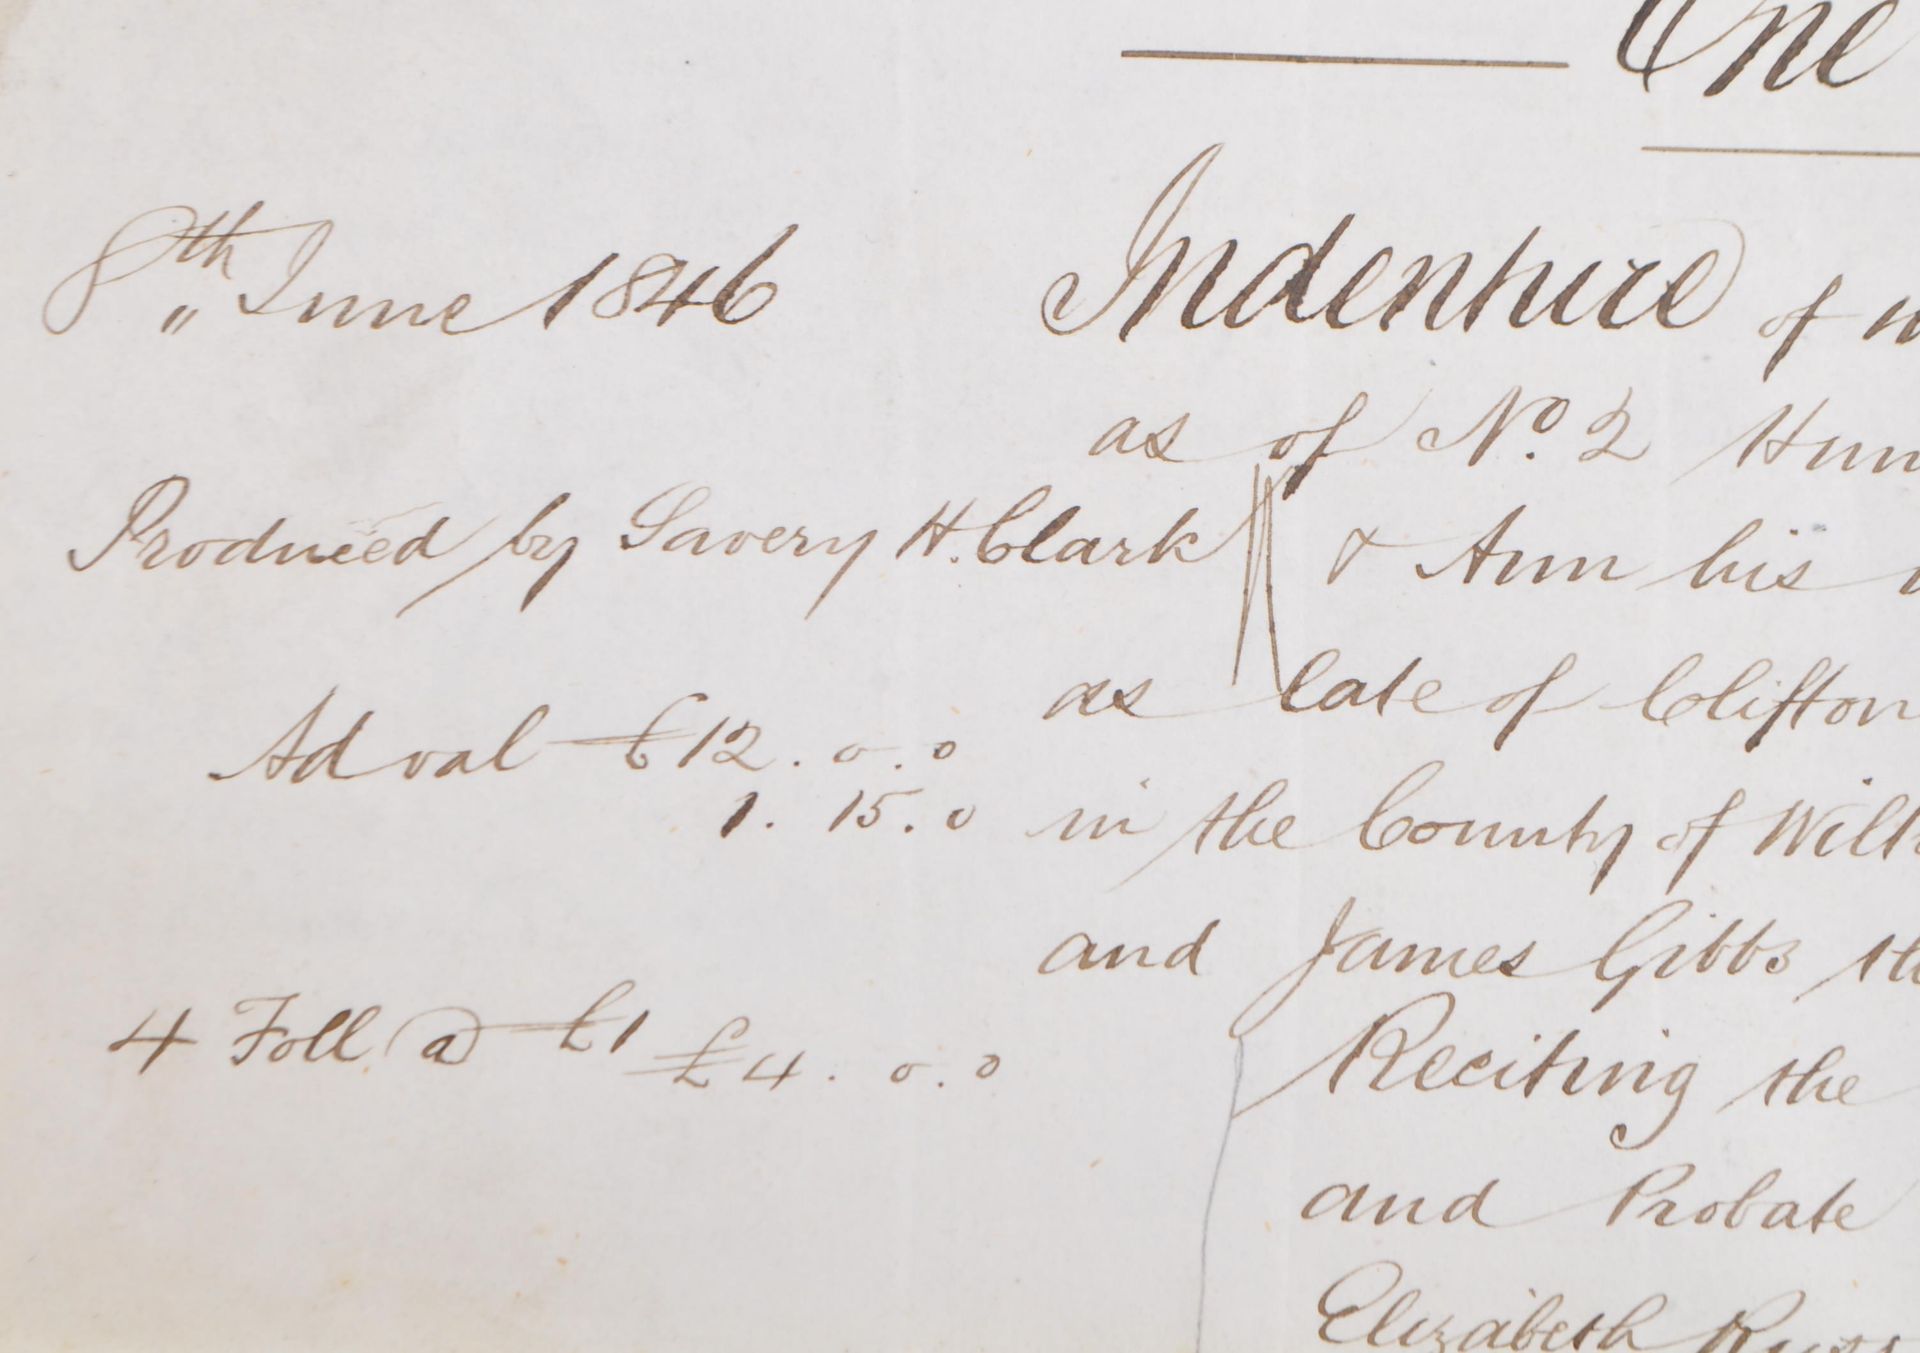 One
8th June 1846
Indenture of
as of No. 2
Produced by Savery H. Clark
& Ann his
as late of Clifton
Ad val £12 . 0 . 0
1 . 15 . 0
in the County of Wilts
and James Gibbs
4 Foll @ £1 £4 . 0 . 0
Reciting the
and Probate
Elizabeth